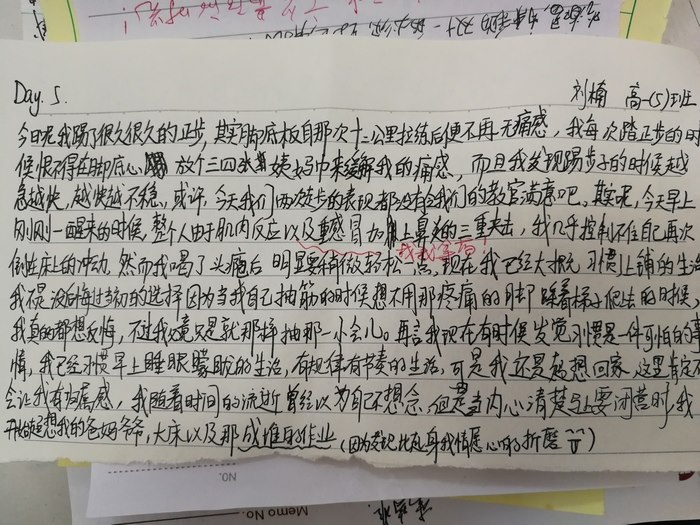 Day. 5.
刘楠 高一(5)班
今日呢我踢了很久很久的正步，其实脚底板自那次十二公里拉练后便不再无痛感，我每次踏正步的时
候恨不得在脚底心 放个三四张姨妈巾来缓解我的痛感，而且我发现踢步子的时候越
急越快，越快越不稳，或许，今天我们两次走步的表现都没有令我们的教官满意吧。其实呢，今天早上
刚刚一醒来的时候，整个人由于肌肉反应以及重感冒加上鼻炎的三重夹击，我几乎控制不住自己再次
倒在床上的冲动，然而我喝了头孢后 明显要稍微轻松一点，现在我已经大概习惯上铺的生活
我不是没后悔过当初的选择因为当我自己抽筋的时候想不用那疼痛的脚 踩着梯子爬去的时候，
我真的都想反悔，不过我毕竟只是就那样抽那一小会儿。再言我现在有时候发觉习惯是一件可怕的事
情，我已经习惯早上睡眼朦胧的生活，有规律有节奏的生活，可是我还是想回家，这里肯定不
会让我有归属感，我随着时间的流逝曾经以为自己不想念，但是当内心清楚马上要闭营时，我
开始起想我的爸妈爷爷，大床以及那成堆的作业（因为
的折磨
NO.
Memo No.